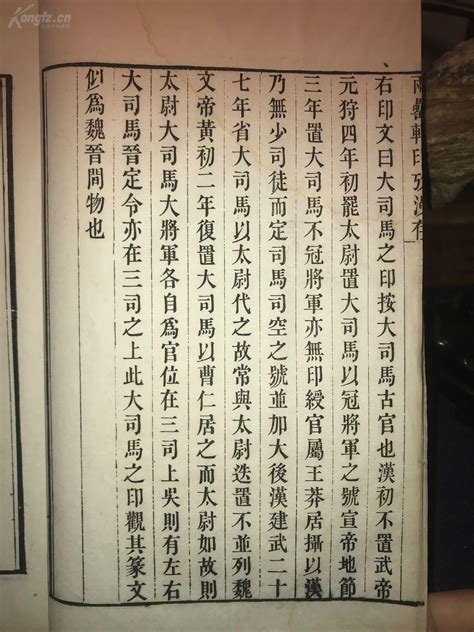 Kongfz.cn
兩罍軒印攷漫存
右印文曰大司馬之印按大司馬古官也漢初不置武帝
元狩四年初罷太尉置大司馬以冠將軍之號宣帝地節
三年置大司馬不冠將軍亦無印綬官屬王莽居攝以漢
乃無少司徒而定司馬司空之號並加大後漢建武二十
七年省大司馬以太尉代之故常與太尉迭置不並列魏
文帝黃初二年復置大司馬以曹仁居之而太尉如故則
太尉大司馬大將軍各自爲官位在三司上吳則有左右
大司馬晉定令亦在三司之上此大司馬之印觀其篆文
似爲魏晉間物也